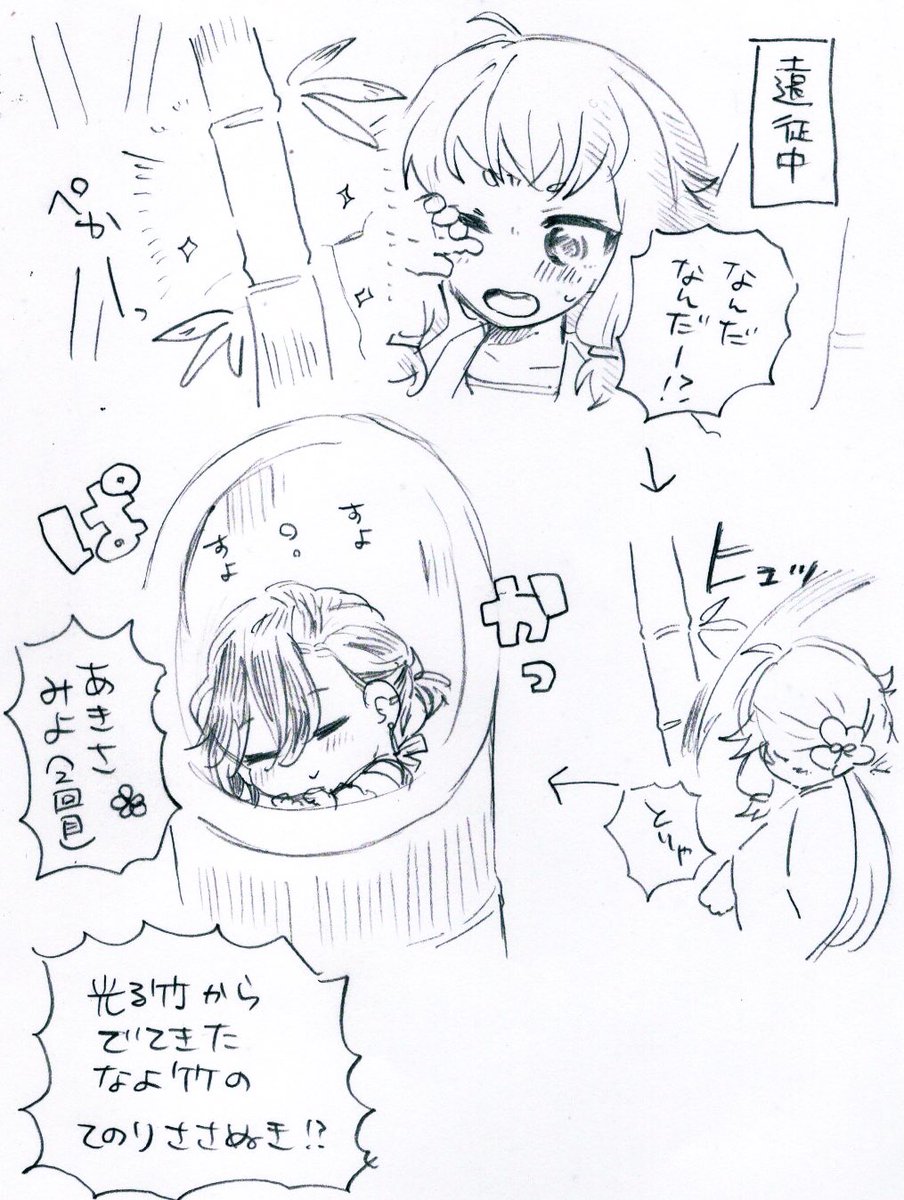 遠征中
なんだ
なんだー!?
ぺかーっ
ヒュッ
とりゃ
ぱかっ
すよ
すよ
あきさ
みよ(2回目)
光る竹から
でてきた
なよ竹の
てのりささぬき!?